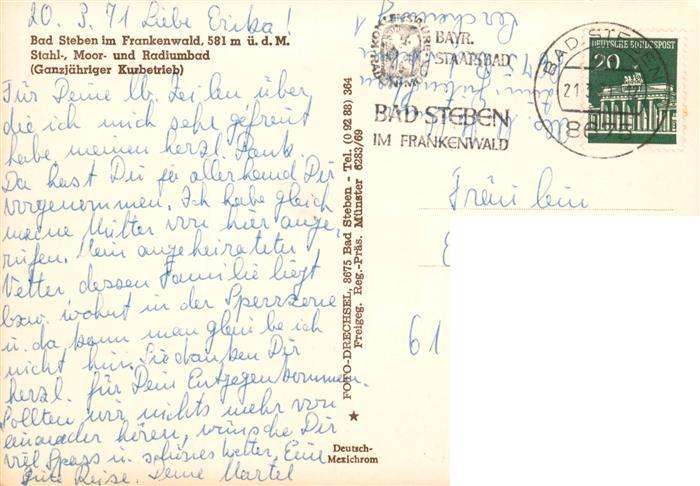 20. 3. 71 Liebe Erika!
Bad Steben im Frankenwald, 581 m ü. d. M.
Stahl-, Moor- und Radiumbad
(Ganzjähriger Kurbetrieb)
Für Deine lb. Zeilen über
die ich mich sehr gefreut
habe meinen herzl. Dank.
Da hast Du ja allerhand Dir
vorgenommen. Ich habe gleich
meine Mutter von hier ange-
rufen. Mein angeheirateter
Vetter dessen Familie liegt
bzw. wohnt in der Sperrzone
u. da kann man glaube ich
nicht hin. Sie danken Dir
herzl. für Dein Entgegenkommen.
Sollten wir nichts mehr von
einander hören, wünsche Dir
viel Spass u. schönes Wetter. Eine
gute Reise. Deine
FOTO-DRECHSEL, 8675 Bad Steben - Tel. (0 92 88) 364
Freigeg. Reg.-Präs. Münster 6283/69
Deutsch-
Mexichrom
BAYR.
STAATSBAD
BAD STEBEN
IM FRANKENWALD
BAD STEBEN
21.
8675
DEUTSCHE BUNDESPOST
20
Fräulein
61